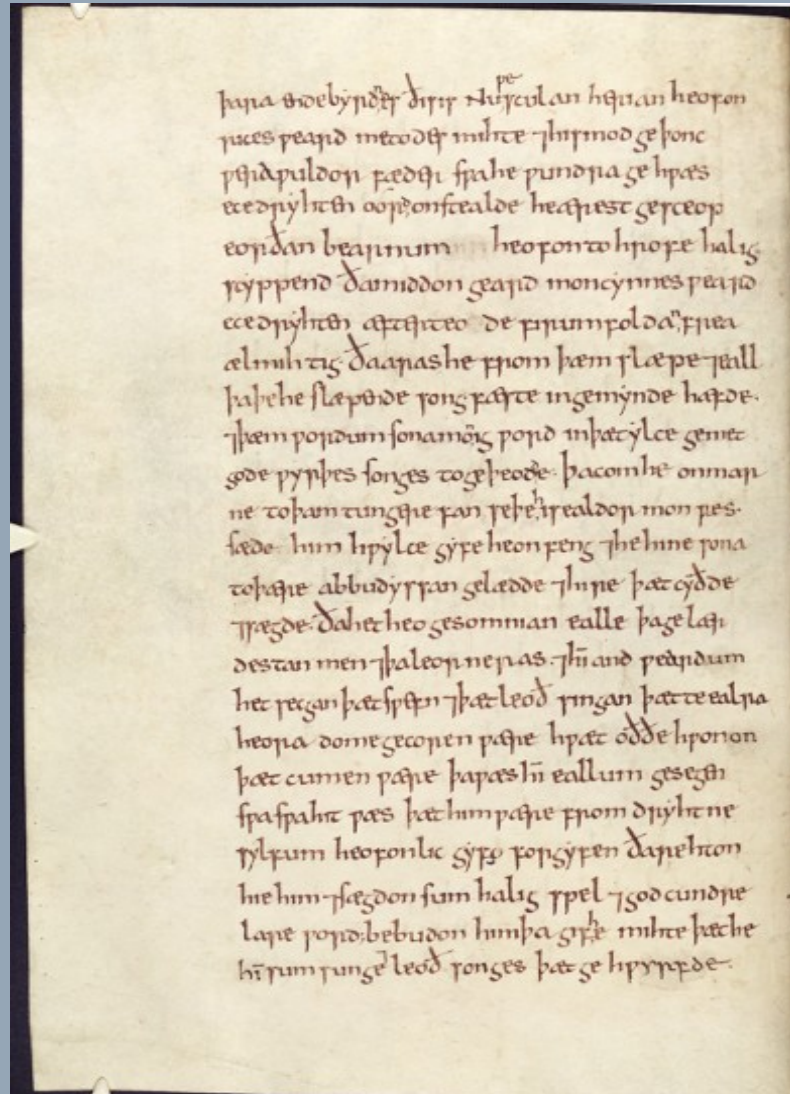 þara endebyrdnes ðis is Nu ƿe sculan herian heofon
rices ƿeard metodes mihte ⁊his modgeþonc
ƿera ƿuldor fæder sƿa he ƿundra gehƿæs
ece dryhten oord onstealde he ærest gesceop
eorðan bearnum heofon to hrofe halig
scyppend ða middongeard moncynnes ƿeard
ece dryhten æfter teode firum foldan frea
ælmihtig ða aras he from þæm slæpe ⁊eall
þa þe he slæpende song fæste in gemynde hæfde.
⁊þæm ƿordum sona monig ƿord in þæt ylce gemet
gode ƿyrþes songes togeþeodde. þa com he on mar
ne to þam tungerefan se þe his ealdormon ƿes.
sæde him hƿylce gyfe he onfeng ⁊he hine sona
to þære abbudyssan gelædde ⁊hire þæt cyðde
⁊sægde. ða het heo gesomnian ealle þa gelær
destan men ⁊þa leorneras. ⁊hī andƿeardum
het secgan þæt sƿefn ⁊þæt leoð singan þætte ealra
heora dome gecoren ƿære hƿæt oððe hƿonon
þæt cumen ƿære þa ƿæs hī eallum gesegen
sƿa sƿa hit ƿæs þæt him ƿære from dryhtne
sylfum heofonlic gyfo forgyfen ða rehton
hie him ⁊sægdon sum halig spel ⁊godcundre
lare ƿord; bebudon him þa gif he mihte þæt he
hī sum sunge leoð songes þæt gehƿyrfde.